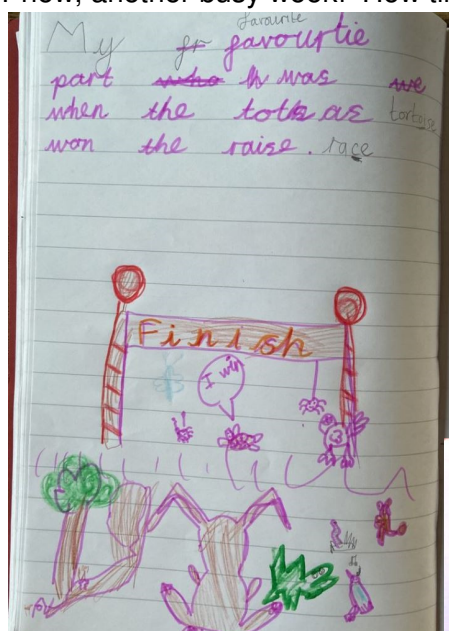 r new, another busy week! How ti
favourite
My fr favourtie
part who h was we
when the totks as tortoise
won the raise. race
Finish
I win